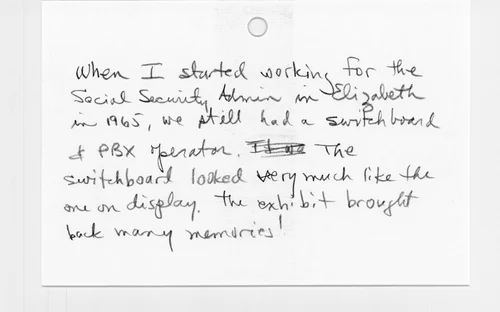 When I started working for the
Social Security Admin in Elizabeth
in 1965, we still had a switchboard
& PBX operator. The
switchboard looked very much like the
one on display. The exhibit brought
back many memories!